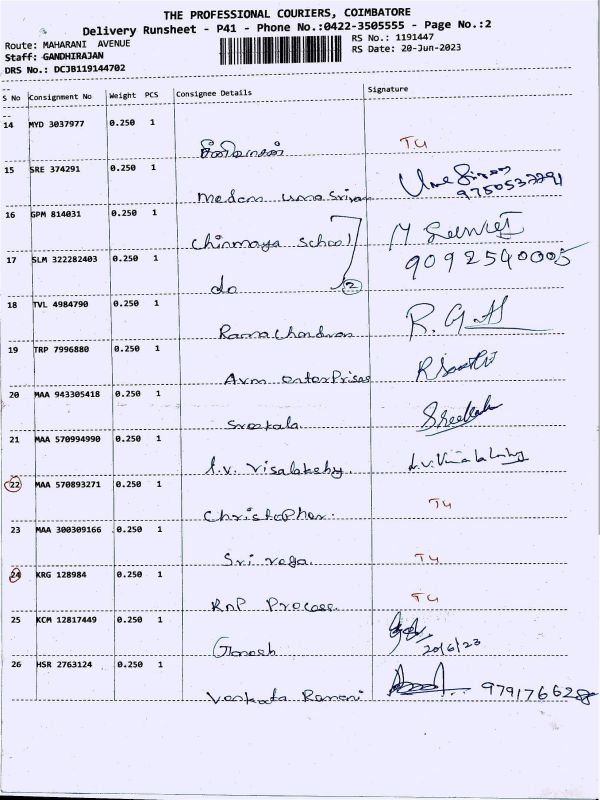 THE PROFESSIONAL COURIERS, COIMBATORE
Delivery Runsheet - P41 - Phone No.:0422-3505555 - Page No.:2
Route: MAHARANI AVENUE
RS No.: 1191447
Staff: GANDHIRAJAN
RS Date: 20-Jun-2023
DRS No.: DCJB119144702
S No Consignment No Weight PCS Consignee Details Signature
14 MYD 3037977 0.250 1
T4
15 SRE 374291 0.250 1
Medam uma Sriram
Uma Sriram
9750532291
16 GPM 814031 0.250 1
Chinmaya School
17 SLM 322282403 0.250 1
9092540005
do 2
18 TVL 4984790 0.250 1
Ramachandran
R. G
19 TRP 7996880 0.250 1
Avm enterprises
20 MAA 943305418 0.250 1
Sreekala
Sreekala
21 MAA 570994990 0.250 1
L.V. Visalakshy.
22 MAA 570893271 0.250 1
Christopher.
T4
23 MAA 300309166 0.250 1
Sri raga.
T4
24 KRG 128984 0.250 1
RnP Process
T4
25 KCM 12817449 0.250 1
Ganesh
20/6/23
26 HSR 2763124 0.250 1
Venkata Ramani
979176628